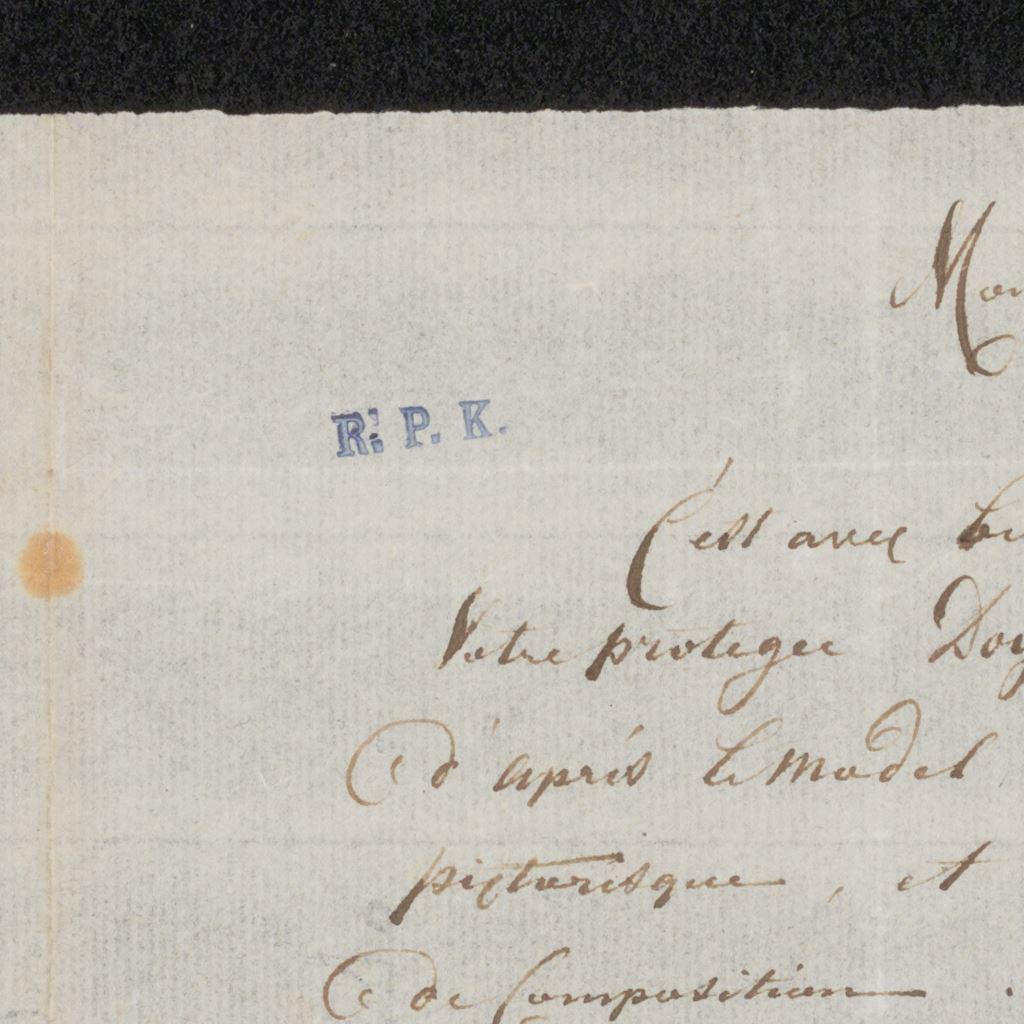 Mon
R. P. K.
C'est avec
Votre protegée Doy
d'après le Model
picturisque, et
de Composition